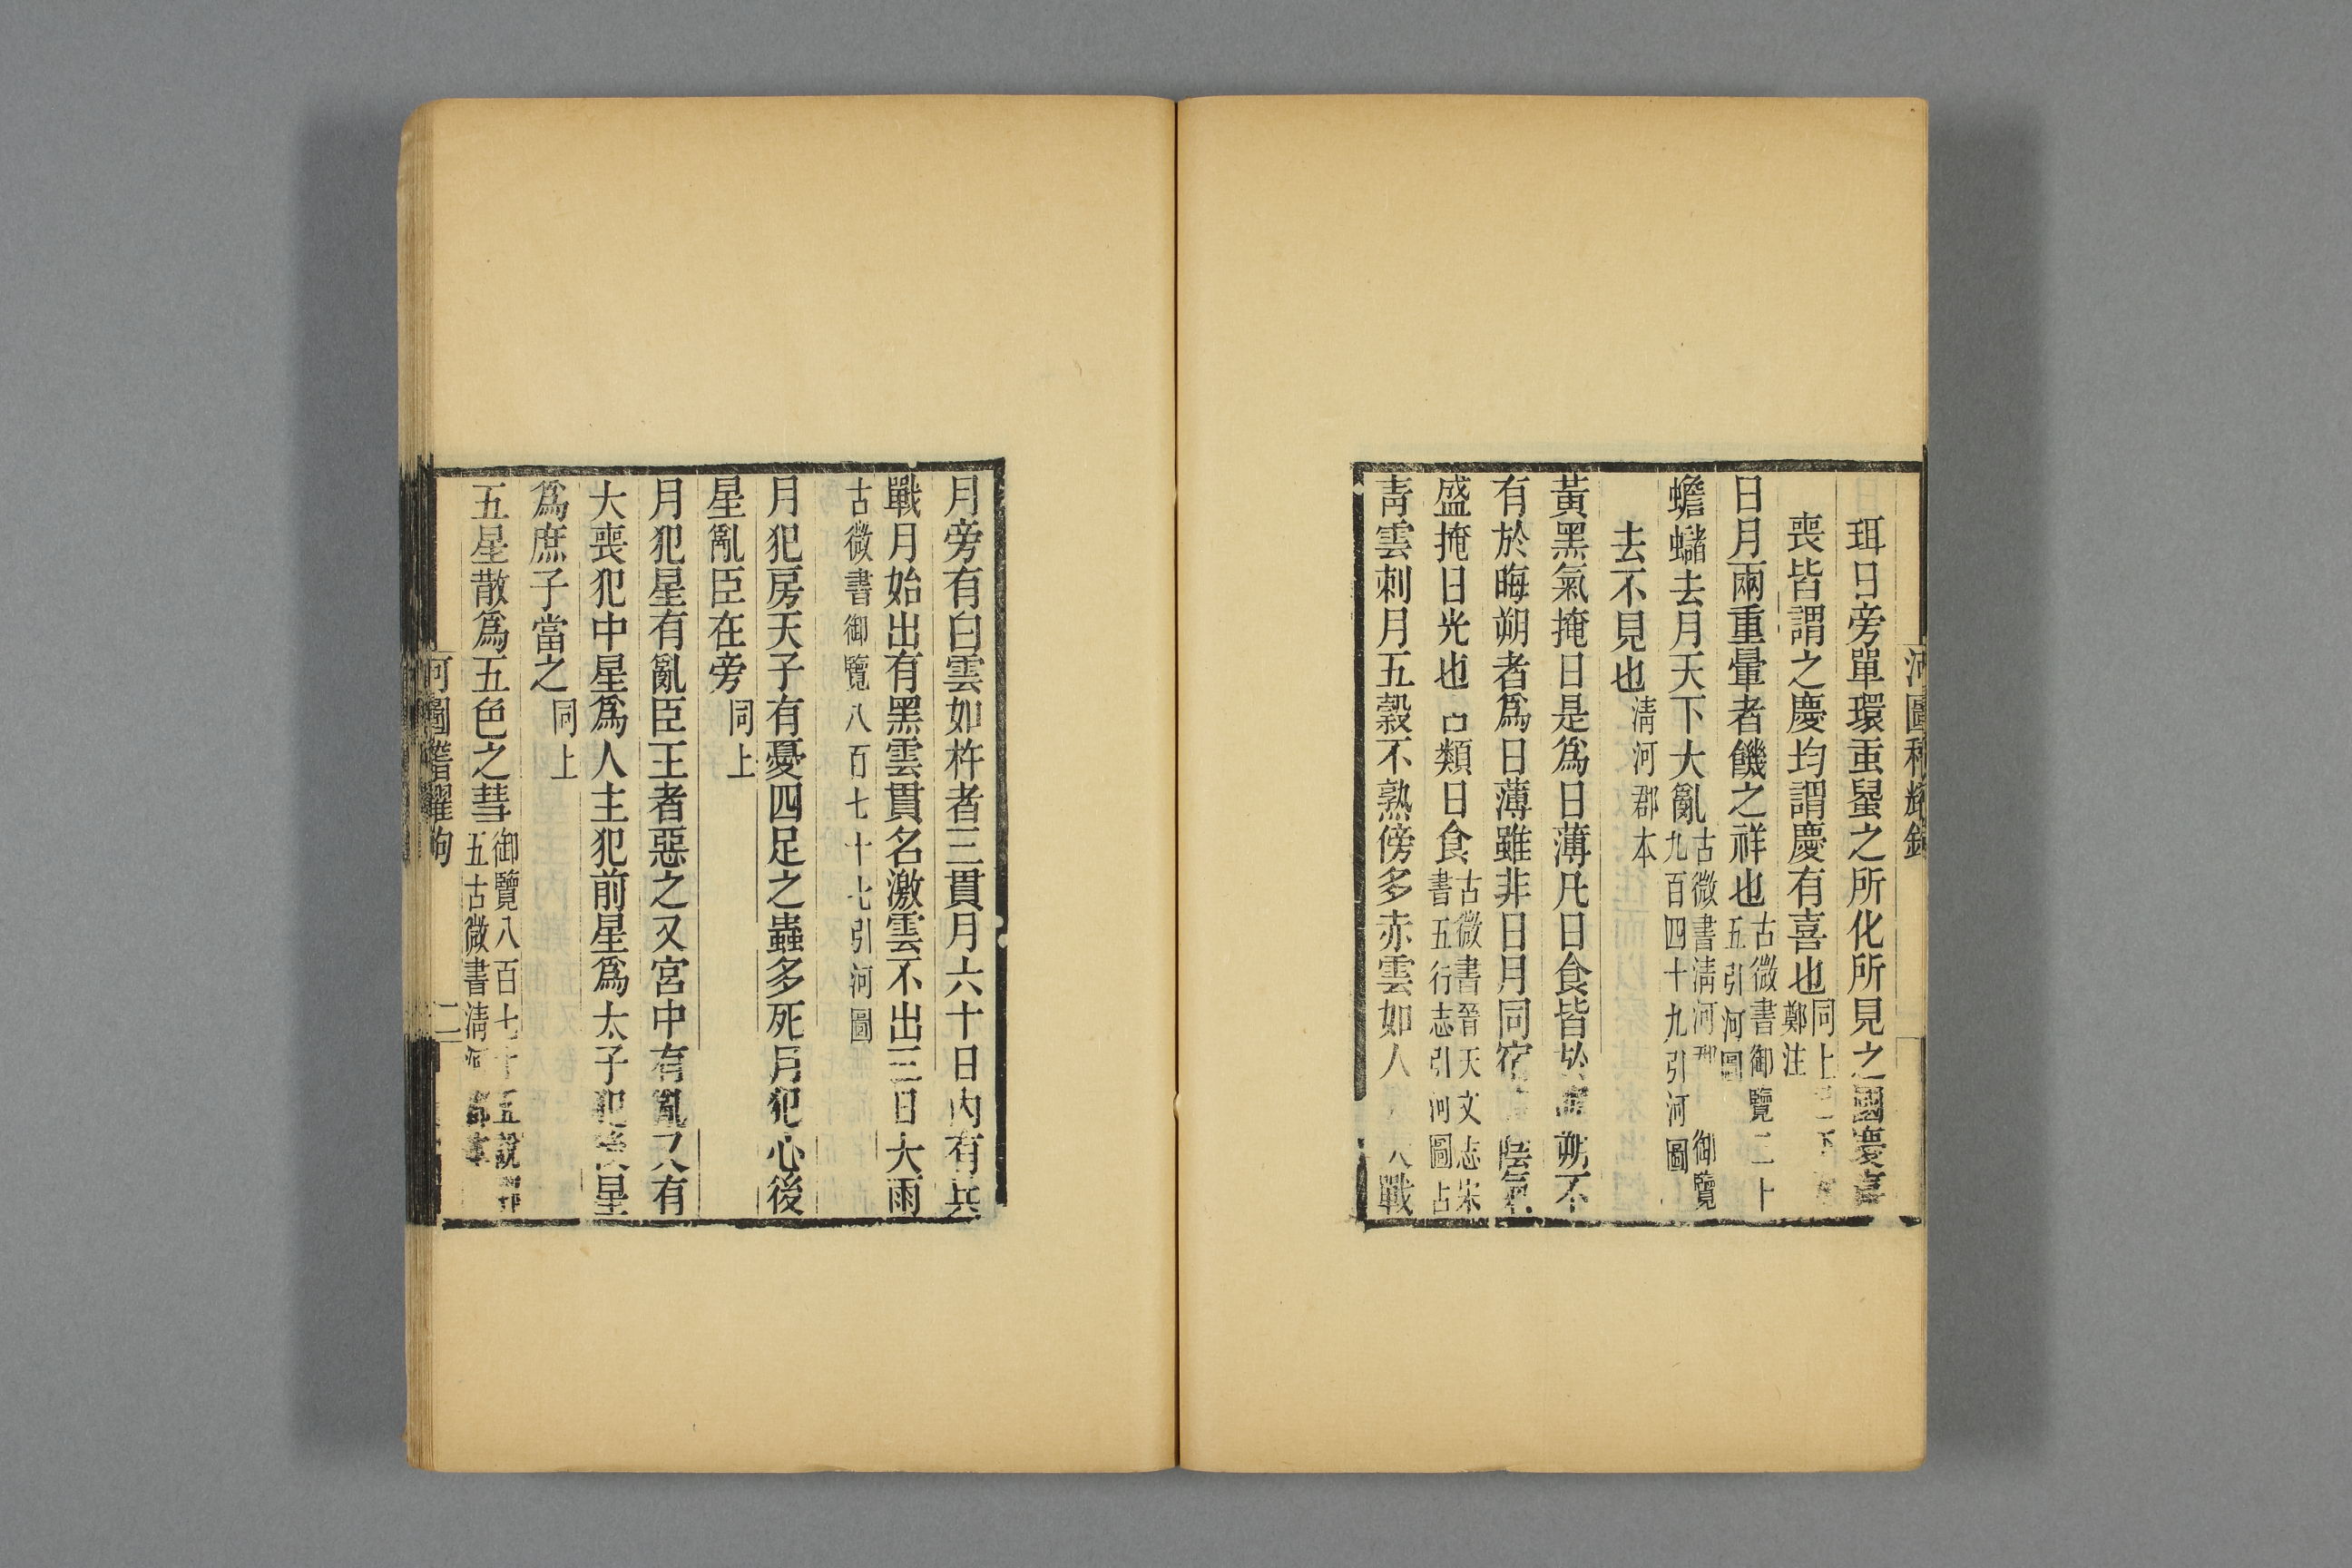 珥日旁單環重蜺之所化所見之國慶喜
喪皆謂之慶均謂慶有喜也同上
鄭注
日月兩重暈者饑之祥也古微書御覽二十
五引河圖
蟾蠩去月天下大亂古微書清河 御覽
九百四十九引河圖
去不見也清河郡本
黃黑氣掩日是爲日薄凡日食皆於 朔不
有於晦朔者爲日薄雖非日月同宿 陰氣
盛掩日光也占類日食古微書晉天文志宋
書五行志引河圖占
青雲刺月五穀不熟傍多赤雲如人 戰
河圖稽燿鉤
月旁有白雲如杵者三貫月六十日內有兵
戰月始出有黑雲貫名激雲不出三日大雨
古微書御覽八百七十七引河圖
月犯房天子有憂四足之蟲多死月犯心後
星亂臣在旁同上
月犯星有亂臣王者惡之又宮中有亂又有
大喪犯中星爲人主犯前星爲太子犯後星
爲庶子當之同上
五星散爲五色之彗御覽八百七十五說郛
五古微書清河郡本
河圖稽耀鉤
二